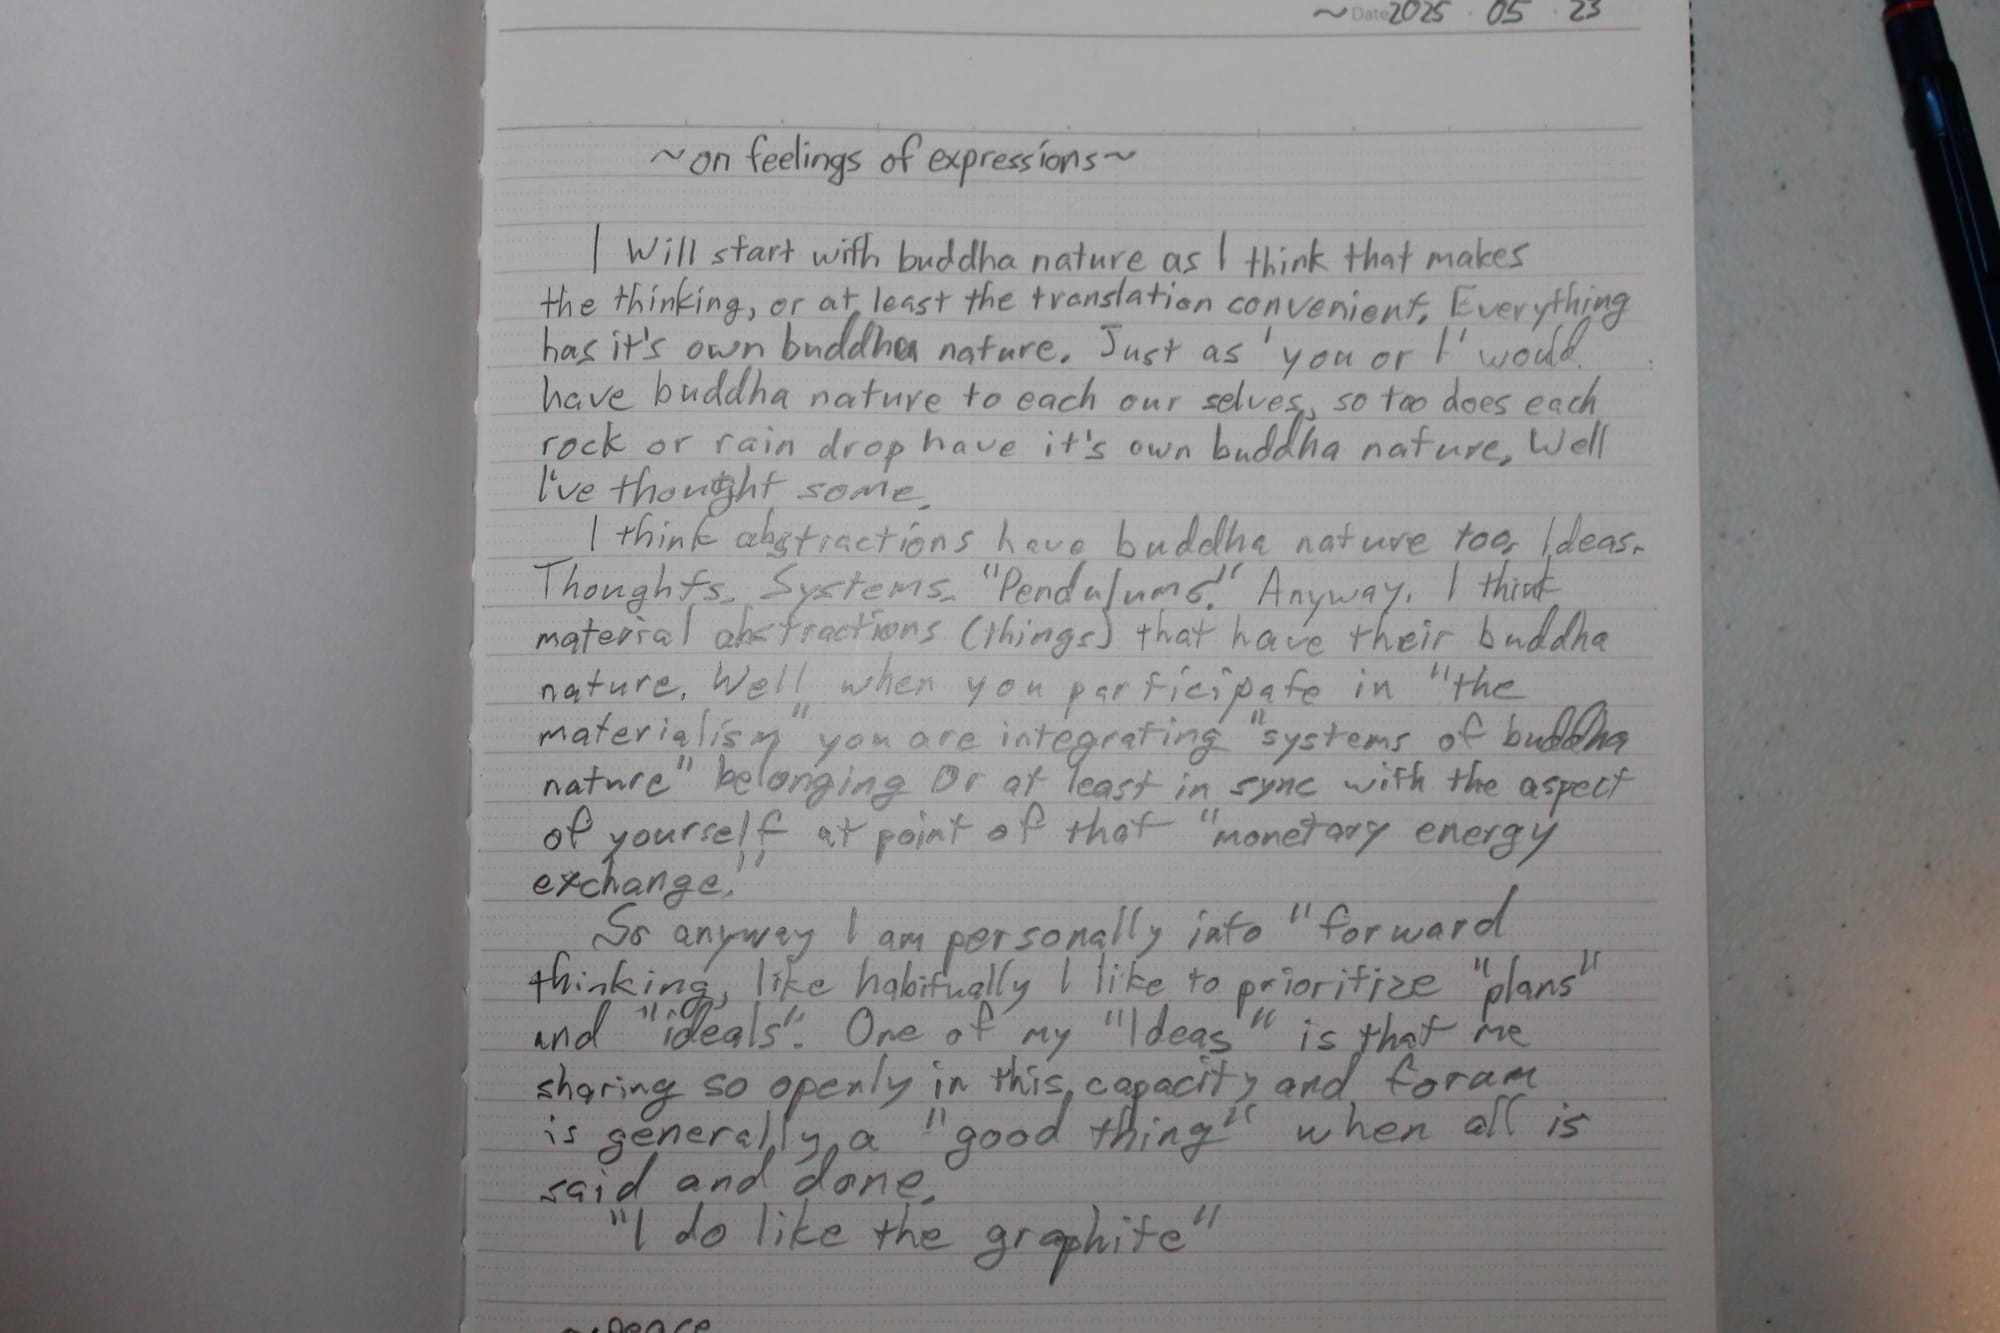 ~Date 2025 · 05 · 23
~on feelings of expressions~
I Will start with buddha nature as I think that makes
the thinking, or at least the translation convenient. Everything
has it's own buddha nature. Just as 'you or I' would
have buddha nature to each our selves, so too does each
rock or rain drop have it's own buddha nature, Well
I've thought some.
I think abstractions have buddha nature too. Ideas.
Thoughts. Systems. "Pendulums." Anyway. I think
material abstractions (things) that have their buddha
nature. Well when you participate in "the
materialism" you are integrating "systems of buddha
nature" belonging Or at least in sync with the aspect
of yourself at point of that "monetary energy
exchange."
So anyway I am personally into "forward
thinking, like habitually I like to prioritize "plans"
and "ideals". One of my "Ideas" is that me
sharing so openly in this capacity and foram
is generally a "good thing" when all is
said and done.
"I do like the graphite"
~peace